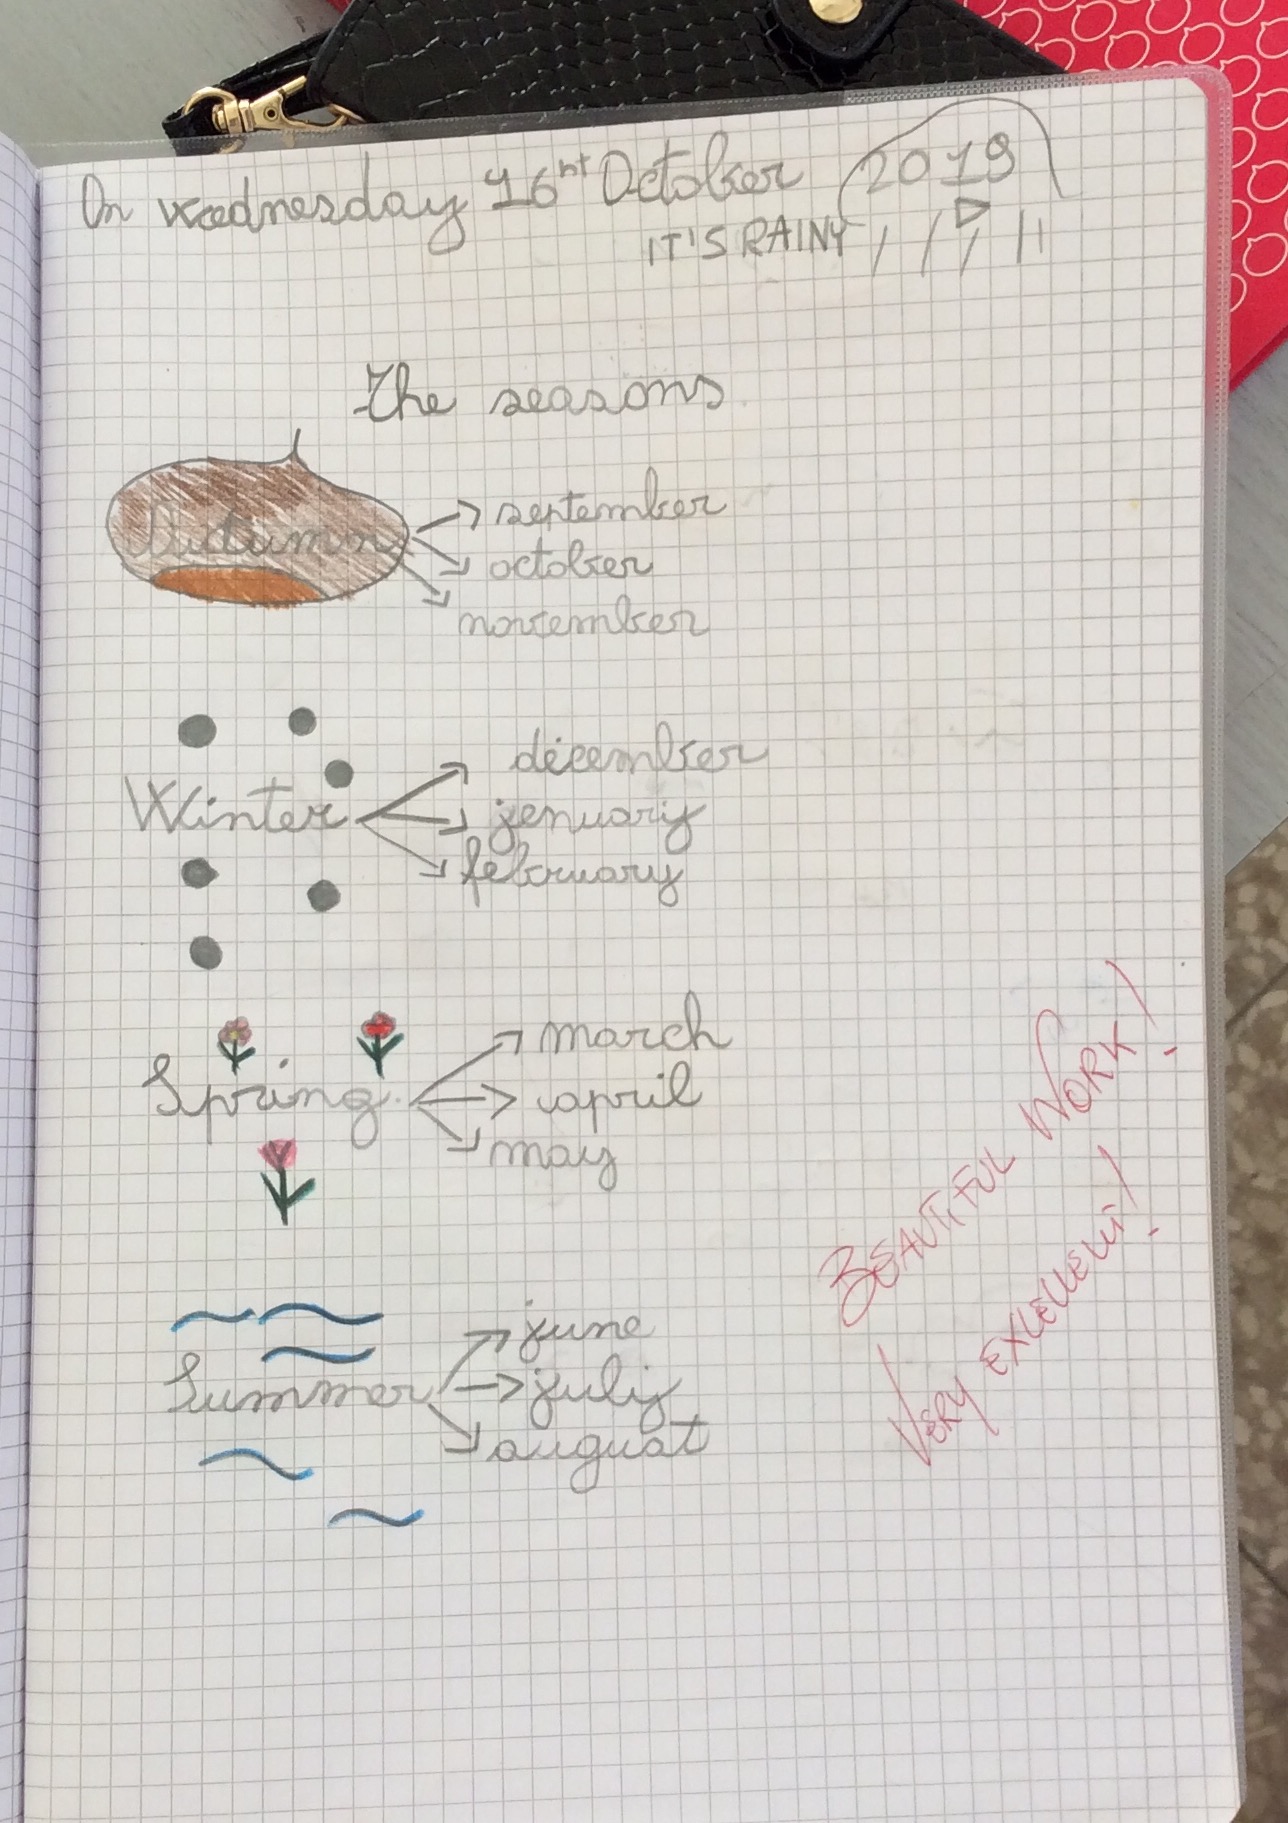 On wednesday 16nt October 2019
IT'S RAINY
The seasons
Autumn
september
october
november
Winter
december
jenuary
february
Spring
march
april
may
Summer
june
july
august
BEAUTIFUL WORK!
VERY EXLELLENT!